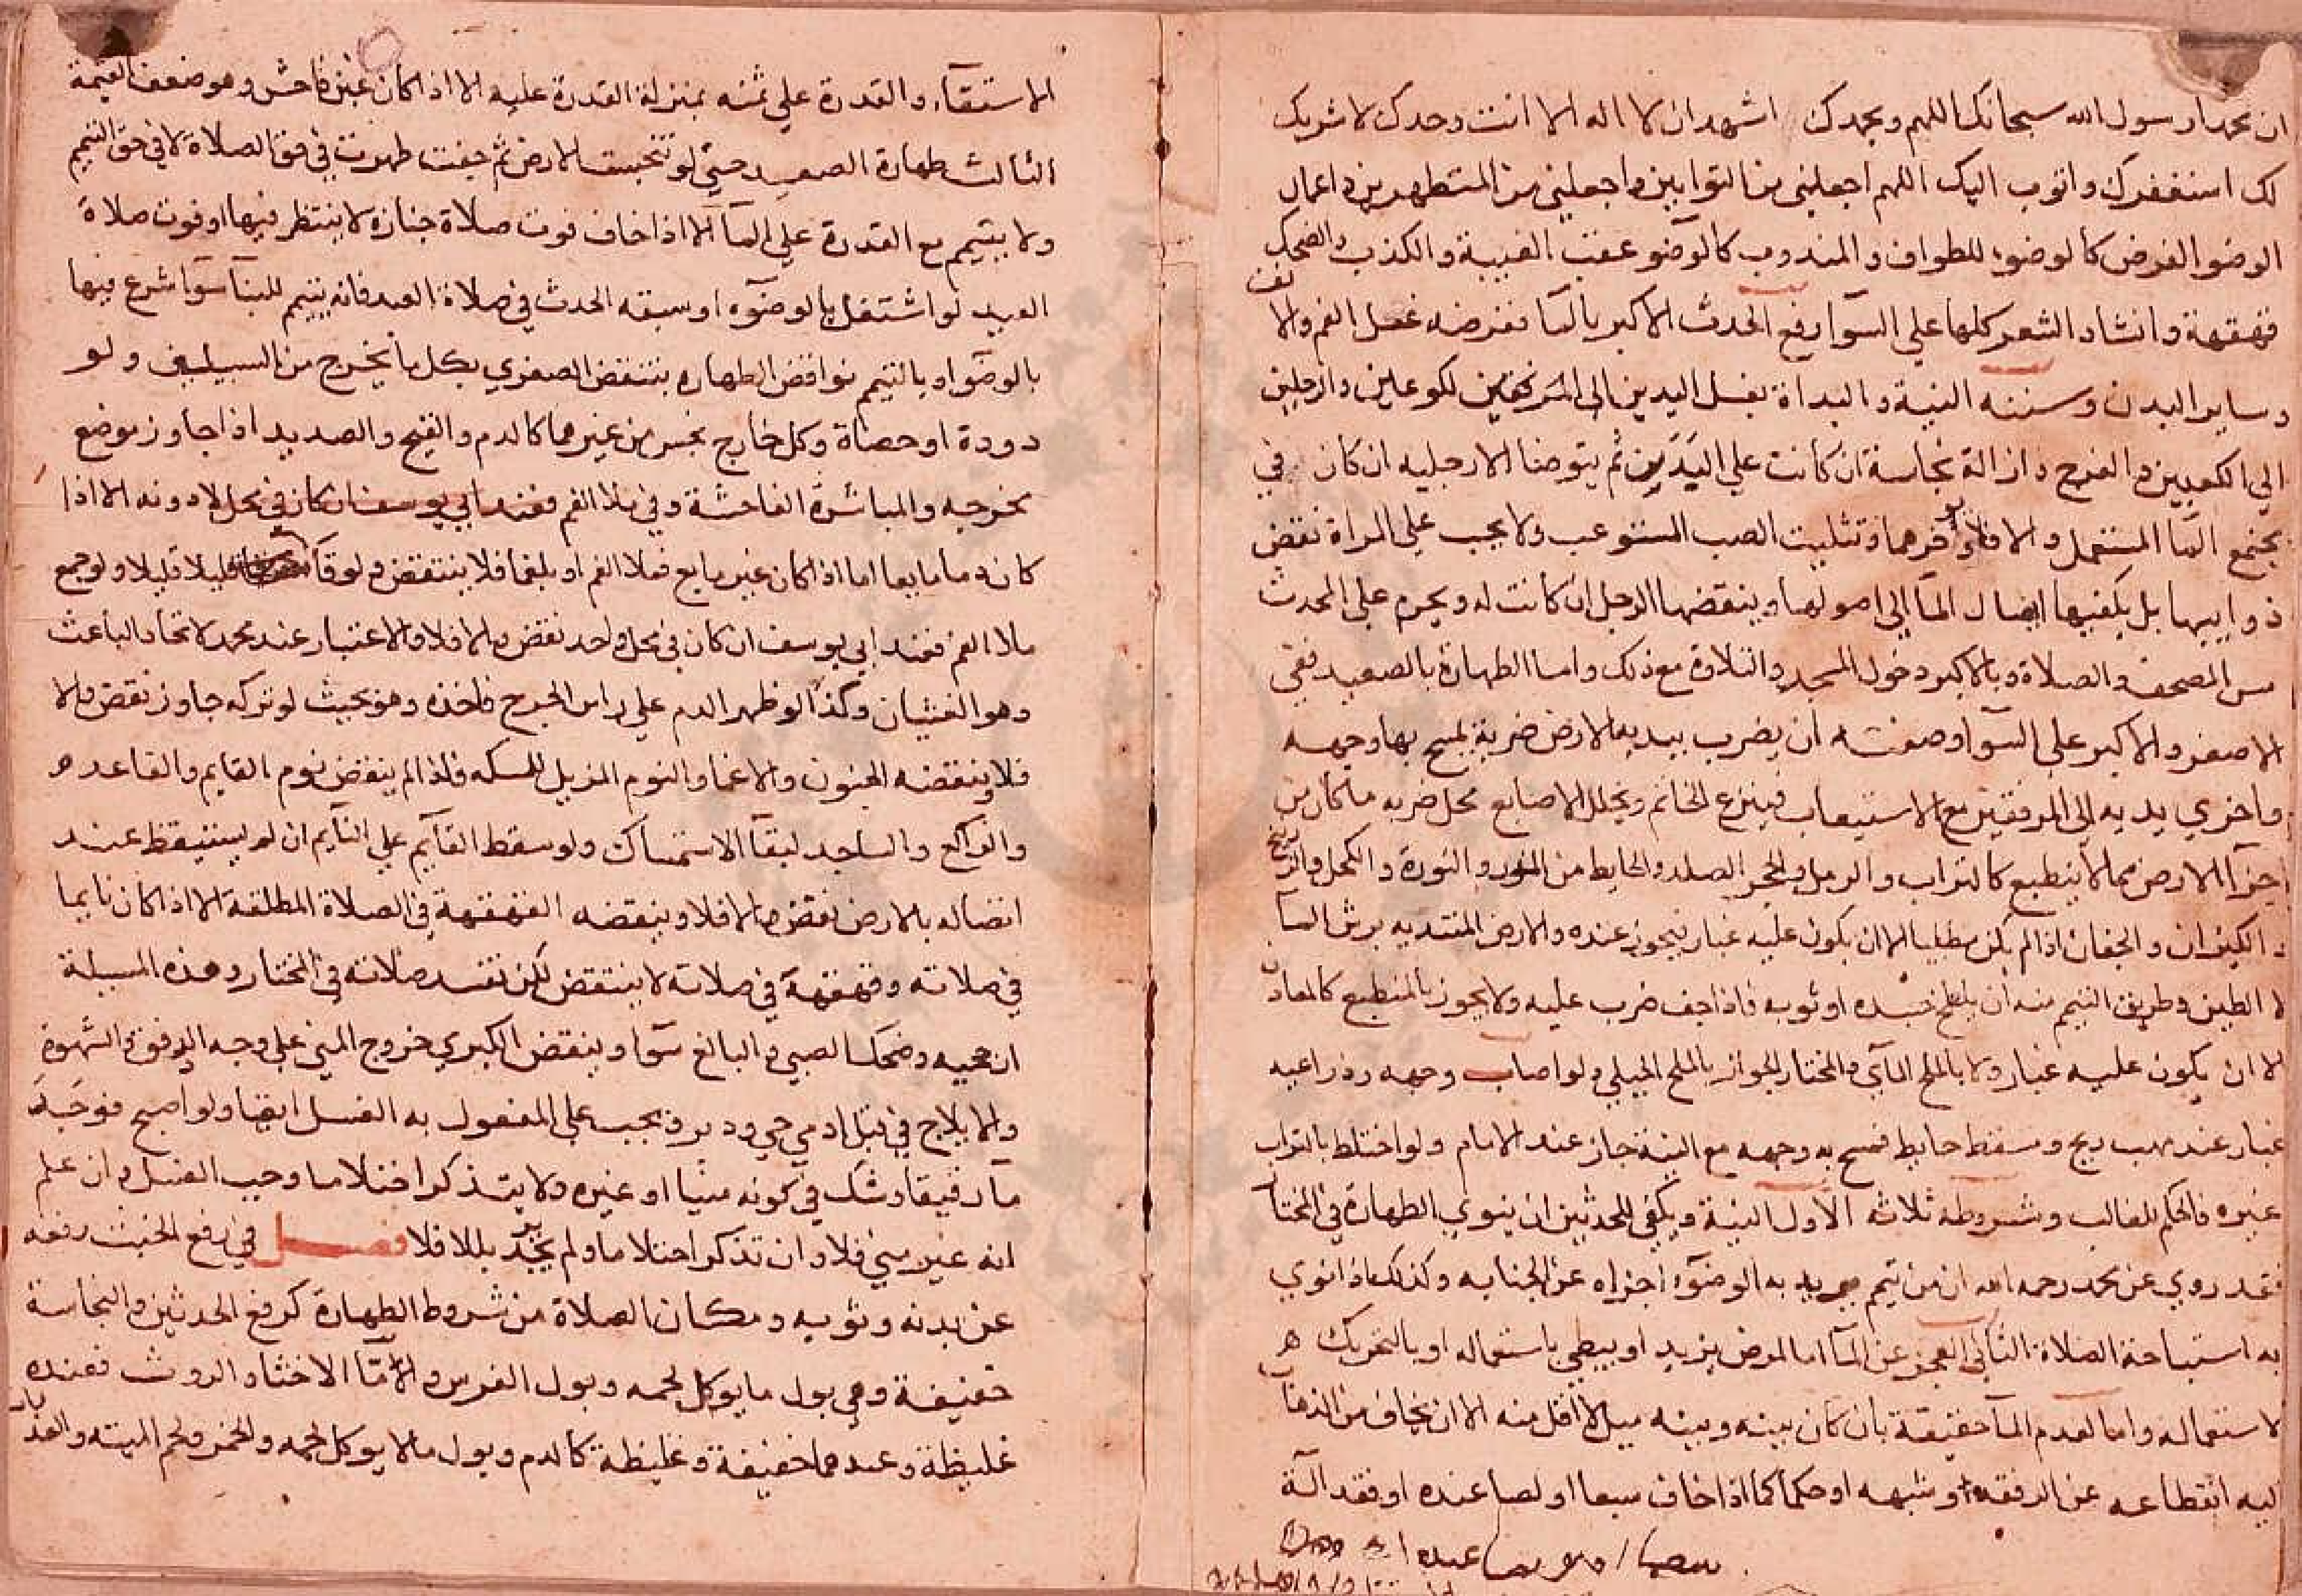 ان محمدا رسول الله سبحانك اللهم وبحمدك اشهد ان لا اله الا انت وحدك لا شريك
لك استغفرك واتوب اليك اللهم اجعلني من التوابين واجعلني من المتطهرين واعمال
الوضو الفرض كالوضوء للطواف والمندوب كالوضو عقب الغيبة والكذب والضحك
قهقهة وانشاد الشعر كلها على السوا رفع الحدث الاكبر بالما ففرضه غسل الفم والانف
وساير البدن وسننه النية والبداة بغسل اليدين الى المرفقين لكوعلين وازجلين
الي الكعبين والفرج وازالة نجاسة ان كانت علي اليدين ثم يتوضا الا رجليه ان كان في
مجتمع الما المستعمل والا فلا وتثليث الصب المستوعب ولا يجب على المراة نقض
ذوايبها بل يكفيها ايصال الما الي اصولها وينقضها الرجل ان كانت له ويحرم على المحدث
مس المصحف والصلاة وبالاكبر دخول المسجد والتلاوة مع ذلك واما الطهارة بالصعيد ففي
الاصغر والاكبر على السوا وصفته ان يضرب بيديه الارض ضربة يمسح بها وجهه
واخري يديه الى المرفقين مع الاستيعاب فينزع الخاتم ويخلل الاصابع محل ضربه ما كان من
اجزآ الارض مما لا ينطبع كالتراب والرمل والحجر الصلد والحايط من المدر والنورة والكحل والزرنيخ
والكيزان والجفان اذا لم يكن مطليا الا ان يكون عليه غبار فيجوز عنده والارض المنتديه برش الما
لا الطين وطريق التيمم منه ان يلطخ جسده او ثوبه فاذا جف ضرب عليه ولا يجوز بالمنطبع كالمعادن
الا ان يكون عليه غبار ولا بالملح المآي والمختار الجواز بالملح الجبلي ولو اصاب وجهه وذراعيه
غبار عند مهب ريح وسقط حايط فمسح به وجهه مع النية جاز عند الامام ولو اختلط بالتراب
غيره فالحكم للغالب وشروطه ثلاثه الاول النية ويكفي للحدثين ان ينوي الطهارة في المختار
فقد روي عن محمد رحمه الله ان من تيمم يريد به الوضوء اجزاه عن الجنابه وكذلك اذا نوي
به استباحة الصلاة الثاني العجز عن المآ اما المرض يزيد او يبطي باستعماله او بالتحريك
لاستعماله واما لعدم المآ حقيقة بان كان بينه وبينه ميل لا اقل منه الا ان يخاف من الذهاب
اليه انقطاعه عن الرفقه او شبهه او حكما كما اذا خاف سبعا او لصا عنده او فقد آلة
الاستقآء والقدرة علي ثمنه بمنزلة القدرة عليه الا اذا كان غبن فاحش وهو ضعف القيمة
الثالث طهارة الصعيد حتى لو تنجست الارض ثم جفت طهرت في حق الصلاة لا في حق التيمم
ولا يتيمم مع القدرة علي المآ الا اذا خاف فوت صلاة جنازه لا ينتظر فيها او فوت صلاة
العيد لو اشتغل بالوضوه او سبقه الحدث في صلاة العيد فانه يتيمم للبنآ سوآ شرع فيها
بالوضوا او بالتيمم نواقض الطهاره ينتقض الصغري بكل ما يخرج من السبيلين ولو
دودة او حصاة وكل خارج نجس من غيرهما كالدم والقيح والصديد اذا جاوز موضع
مخرجه والمباشرة الفاحشة وفي ملا الفم فعند ابي يوسف ان كان في محل لا دونه الا اذا
كان دما مايعا اما اذا كان غير مايع فملا الفم او بلغما فلا ينتقض ولو قآ قليلا قليلا ولو جمع
ملا الفم فعند ابي يوسف ان كان في محل واحد نقض والا فلا والاعتبار عند محمد لاتحاد الباعث
وهو الغثيان وكذا لو ظهر الدم علي راس الجرح فاخذه وهو بحيث لو تركه جاوز نقض والا
فلا وينقضه الجنون والاغما والنوم المزيل للمسكه فلذا لم ينقض نوم القايم والقاعد
والراكع والساجد لبقآ الاستمساك ولو سقط القآيم على النآيم ان لم يستيقظ عند
اتصاله بالارض نقض والا فلا وينقضه القهقهة في الصلاة المطلقة الا اذا كان نايما
في صلاته وقهقهة في صلاته لا ينتقض لكن تفسد صلاته في المختار وهذه المسيلة
ان عجيبه وضحك الصبي والبالغ سوآ وينقض الكبري خروج المني على وجه الدفق والشهوة
والايلاج في قبل ادمي حي ودبر ويجب على المفعول به الغسل ايضا ولو اصبح فوجد
مآ رقيقا وشك في كونه منيا او غيره ولا يتذكر احتلاما وجب الغسل وان علم
انه غير مني فلا وان تذكر احتلاما ولم يجد بللا فلا فصل في رفع الخبث رفعه
عن بدنه وثوبه ومكان الصلاة من شروط الطهارة كرفع الحدثين والنجاسة
خفيفة وهي بول ما يوكل لحمه وبول الفرس والامآا الاخثا والروث فعنده
غليظة وعندهما خفيفة وغليظة كالدم وبول ما لا يوكل لحمه والخمر ولحم الميته والعذ